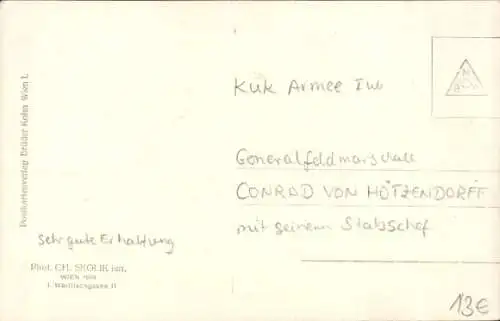 Kuk Armee IWK
Generalfeldmarschall
CONRAD VON HÖTZENDORFF
mit seinem Stabschef
sehr gute Erhaltung
Postkartenverlag Brüder Kohn Wien I.
Phot. CH. SKOLIK jun.
WIEN
I.
13€